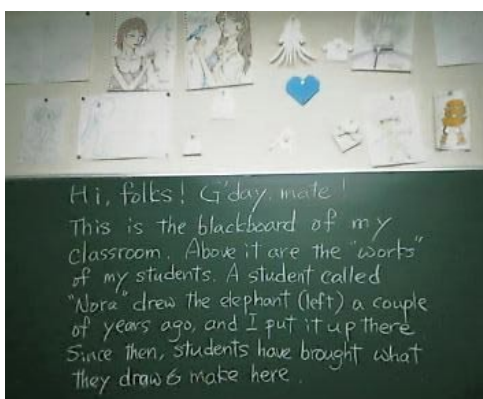 Hi, folks! G'day, mate!
This is the blackboard of my
classroom. Above it are the "works"
of my students. A student called
"Nora" drew the elephant (left) a couple
of years ago, and I put it up there.
Since then, students have brought what
they draw & make here.